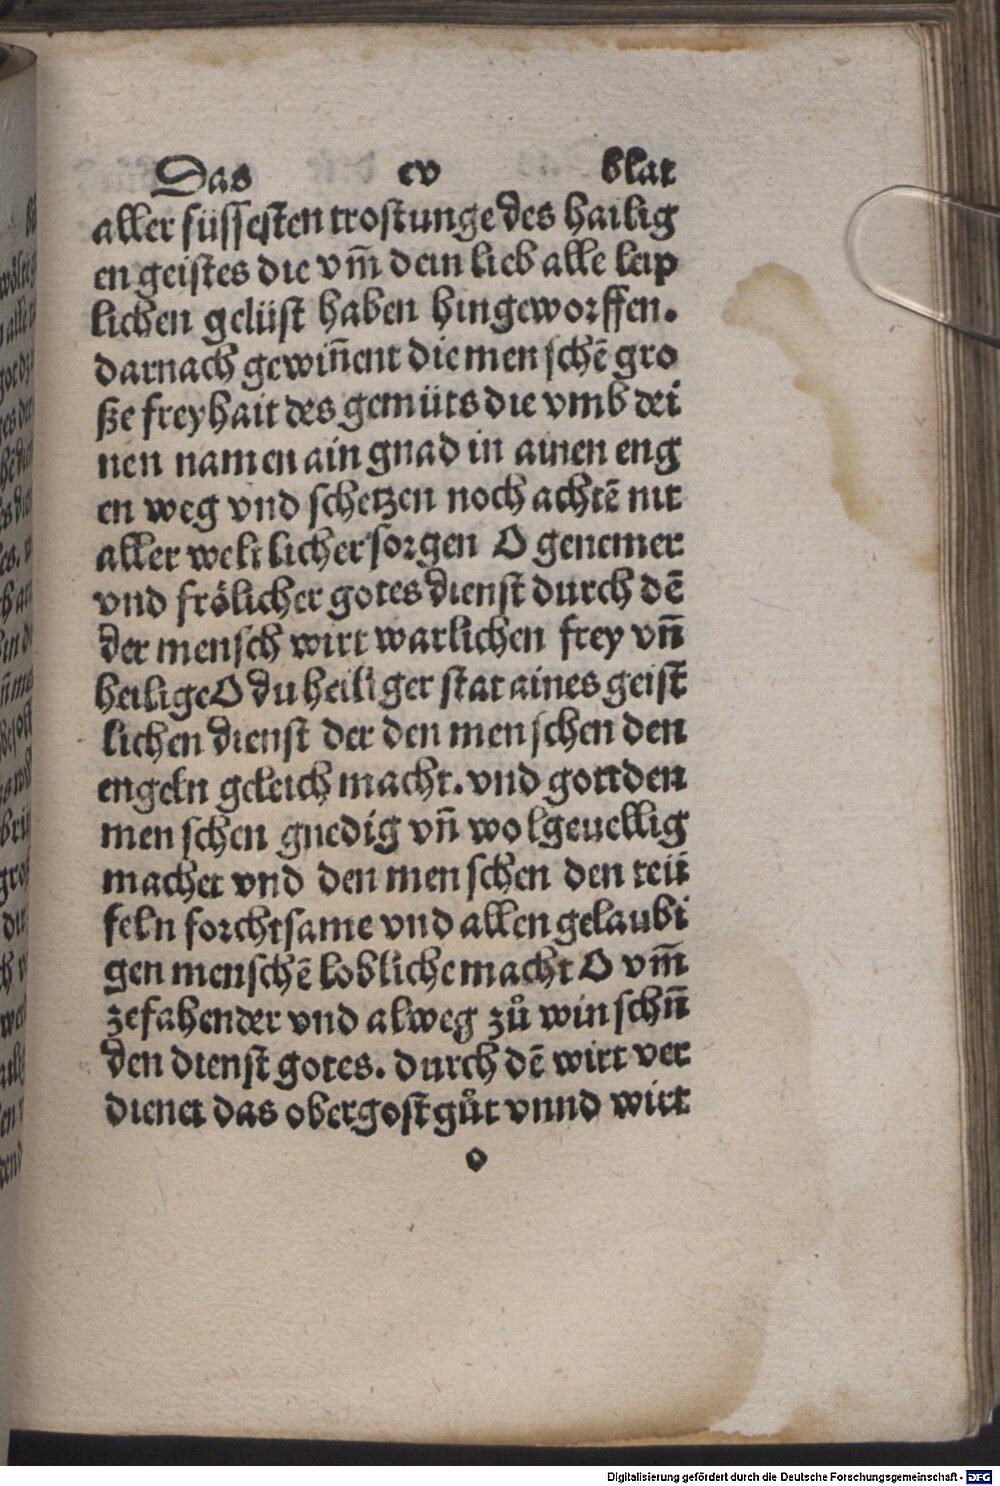 Das cv blat
aller süssesten trostunge des hailig
en geistes die vm̄ dein lieb alle leip
lichen gelüst haben hingeworffen.
darnach gewin̄ent die menschē gro
ße freyhait des gemüts die vmb dei
nen namen ain gnad in ainen eng
en weg vnd schetzen noch achtē nit
aller weltlicher sorgen O genemer
vnd frölicher gotes dienst durch dē
der mensch wirt warlichen frey vn̄
heilige O du heiliger stat aines geist
lichen dienst der den menschen den
engeln geleich macht. vnd gott den
menschen gnedig vn̄ wolgeuellig
machet vnd den menschen den teü
feln forchtsame vnd allen gelaubi
gen menschē lobliche macht O vm̄
zefahender vnd alweg zů winschn̄
den dienst gotes. durch dē wirt ver
dienet das obergost gůt vnnd wirt
o
Digitalisierung gefördert durch die Deutsche Forschungsgemeinschaft - DFG